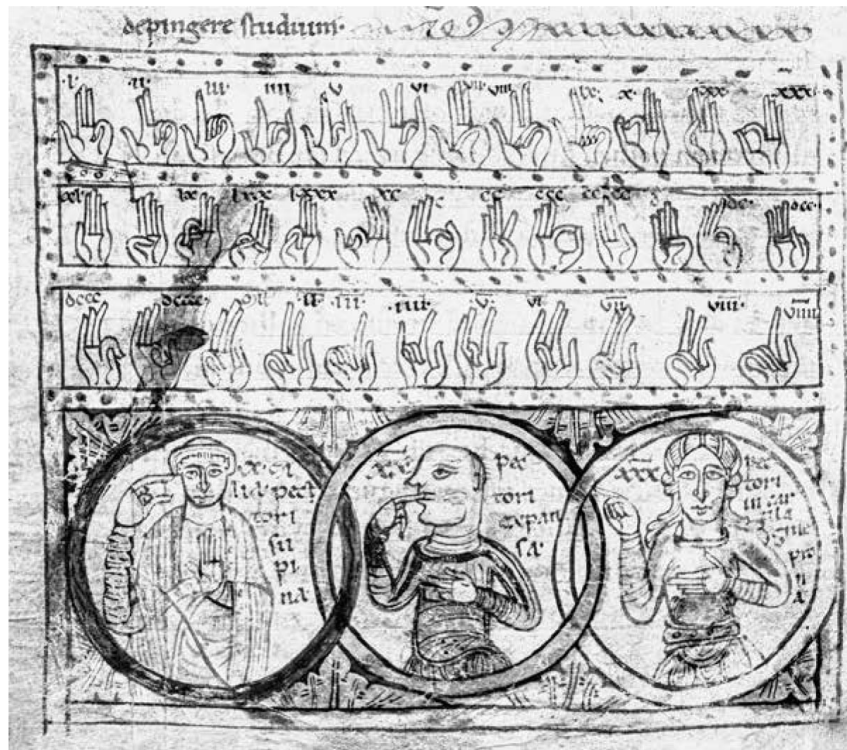 depingere studium·
·i· ·ii· iii· iiii v vi vii· viii ix· x· xx xxx
xl· lx lxx lxxx xc c cc ccc cccc d dc· dcc·
dccc dcccc· ·ii· ·iii· ·iiii· ·v· vi vii viii· viiii
pect
tori
su
pi
na
xx pec
tori
expan
sæ
xxx pec
tori
in car
tila
gine
pro
n
a